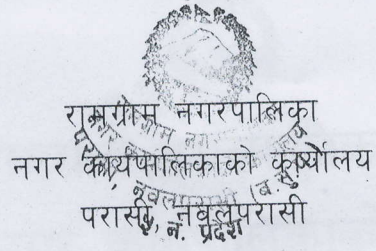 रामग्राम नगरपालिका
नगर कार्यपालिकाको कार्यालय
परासी, नवलपरासी